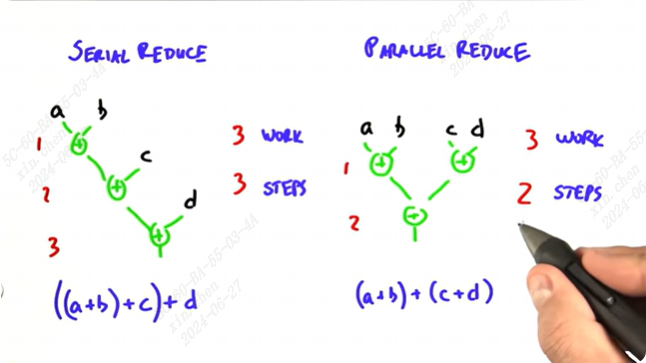 SERIAL REDUCE
a b
1 +
c
2 +
d
3 +
3 WORK
3 STEPS
((a+b)+c)+d
PARALLEL REDUCE
a b c d
1 + +
2 +
3 WORK
2 STEPS
(a+b)+(c+d)
5C-60-8A-55-03-4A
xin.chen
2024-06-27